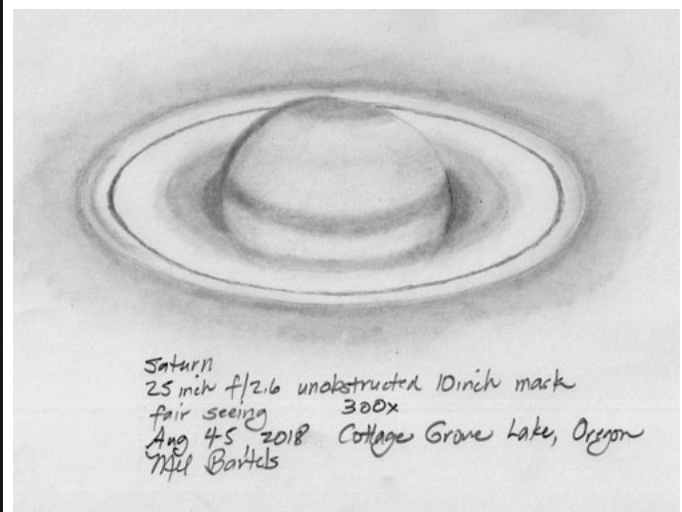 Saturn
25 inch f/2.6 unobstructed 10inch mask
fair seeing 300x
Aug 4-5 2018 Cottage Grove Lake, Oregon
Mel Bartels